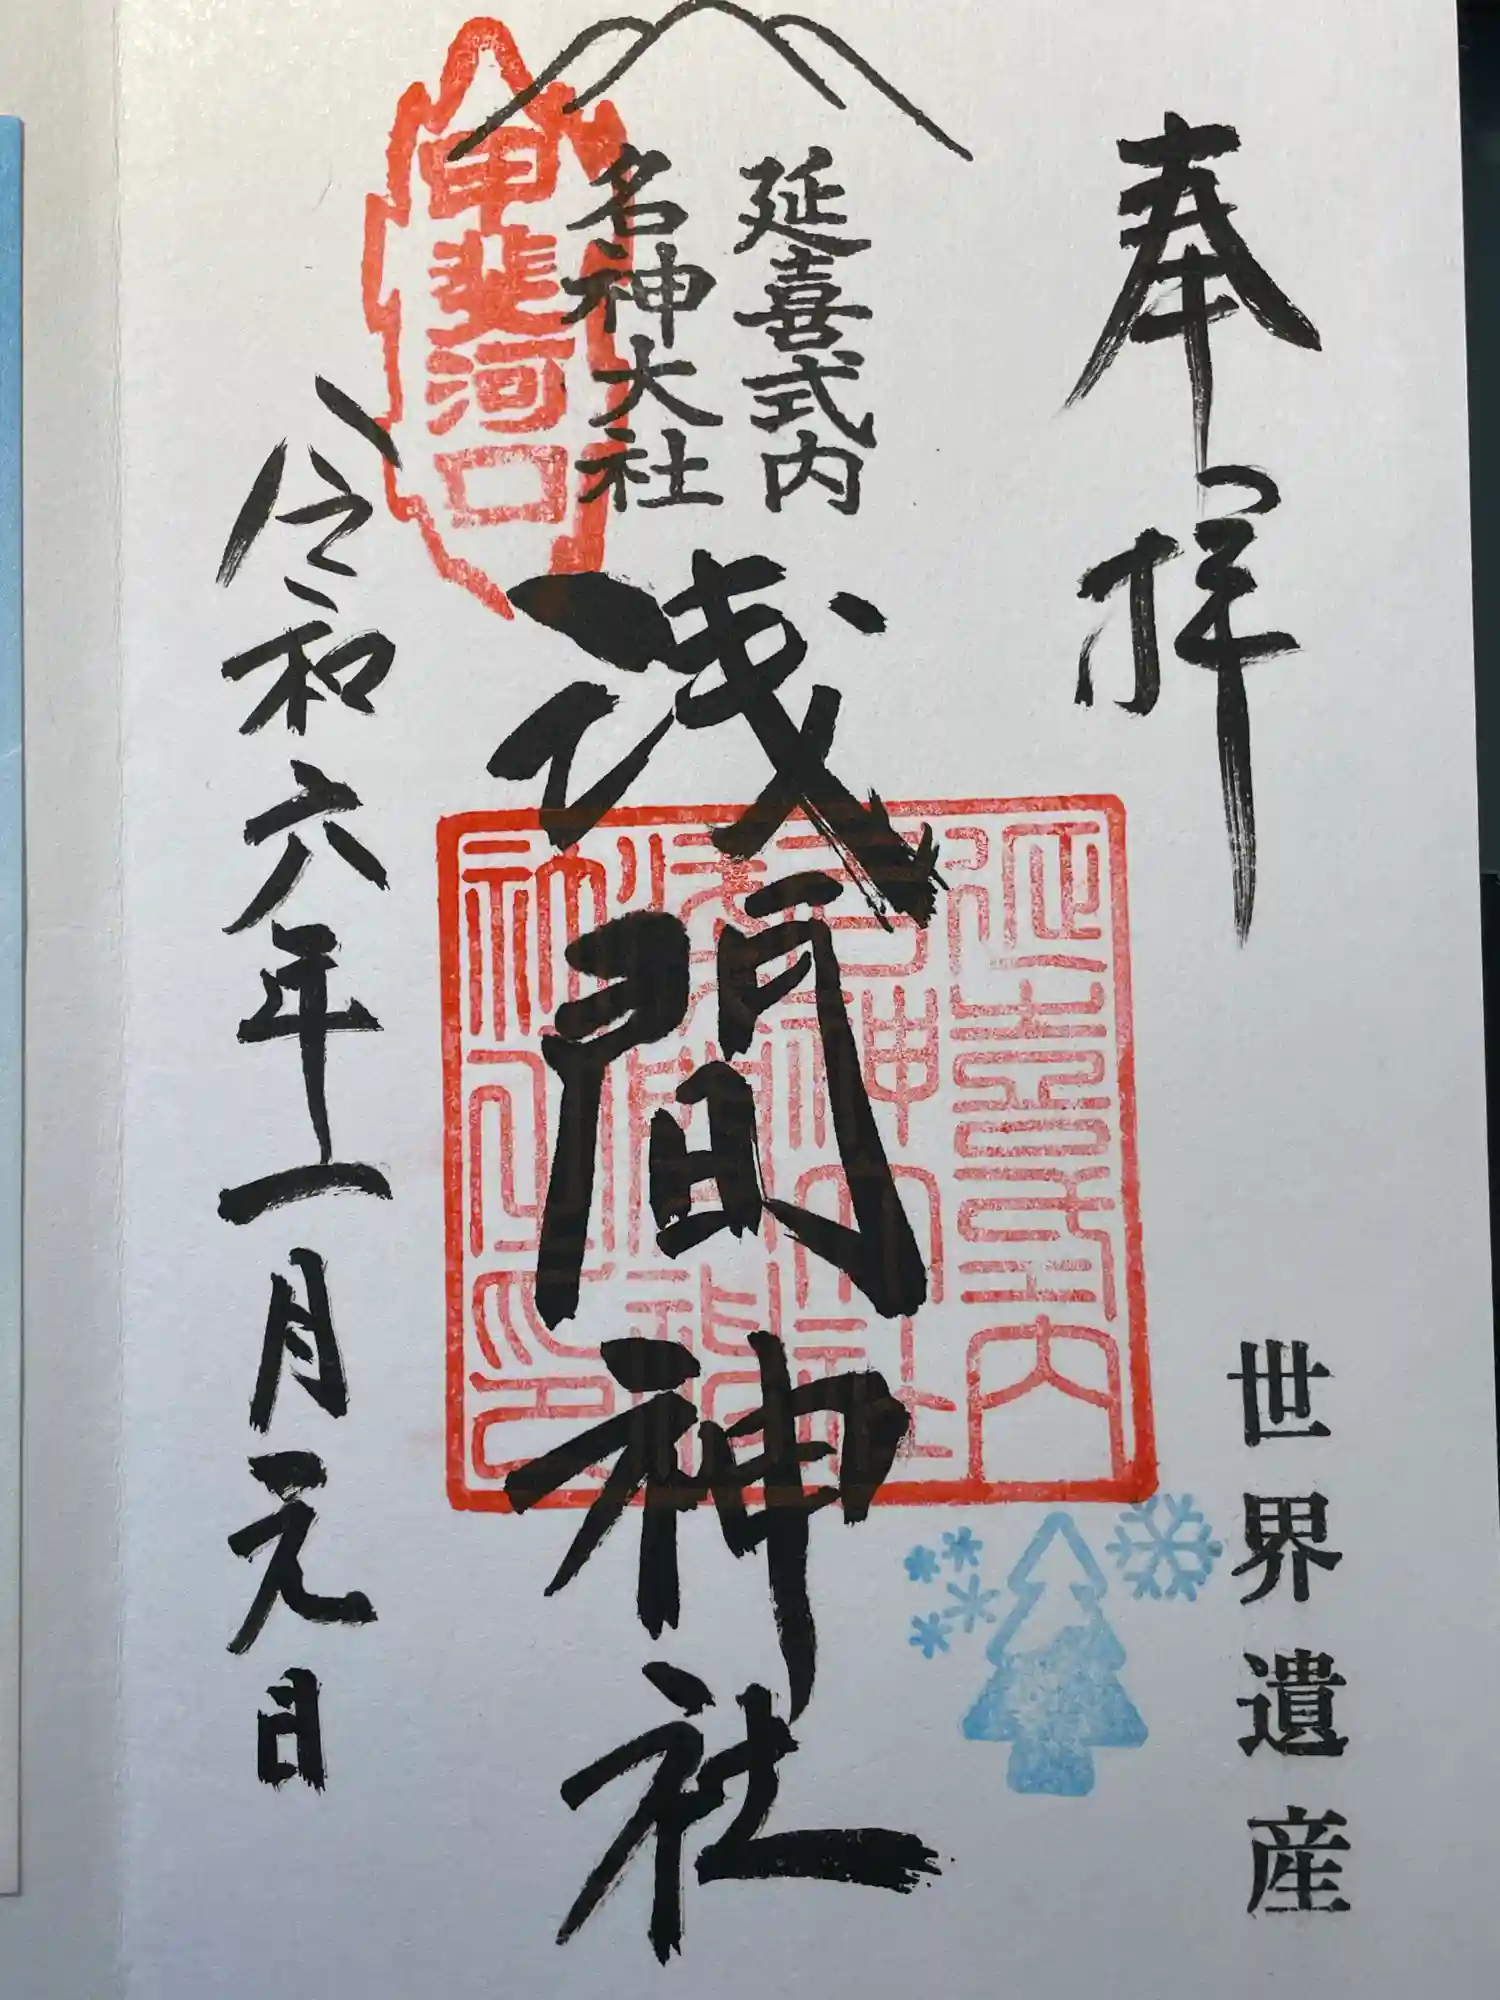 奉拝
世界遺産
延喜式内
名神大社
浅間神社
甲斐河口
延喜式内
名神大社
浅間神
社之印
令和六年一月元日